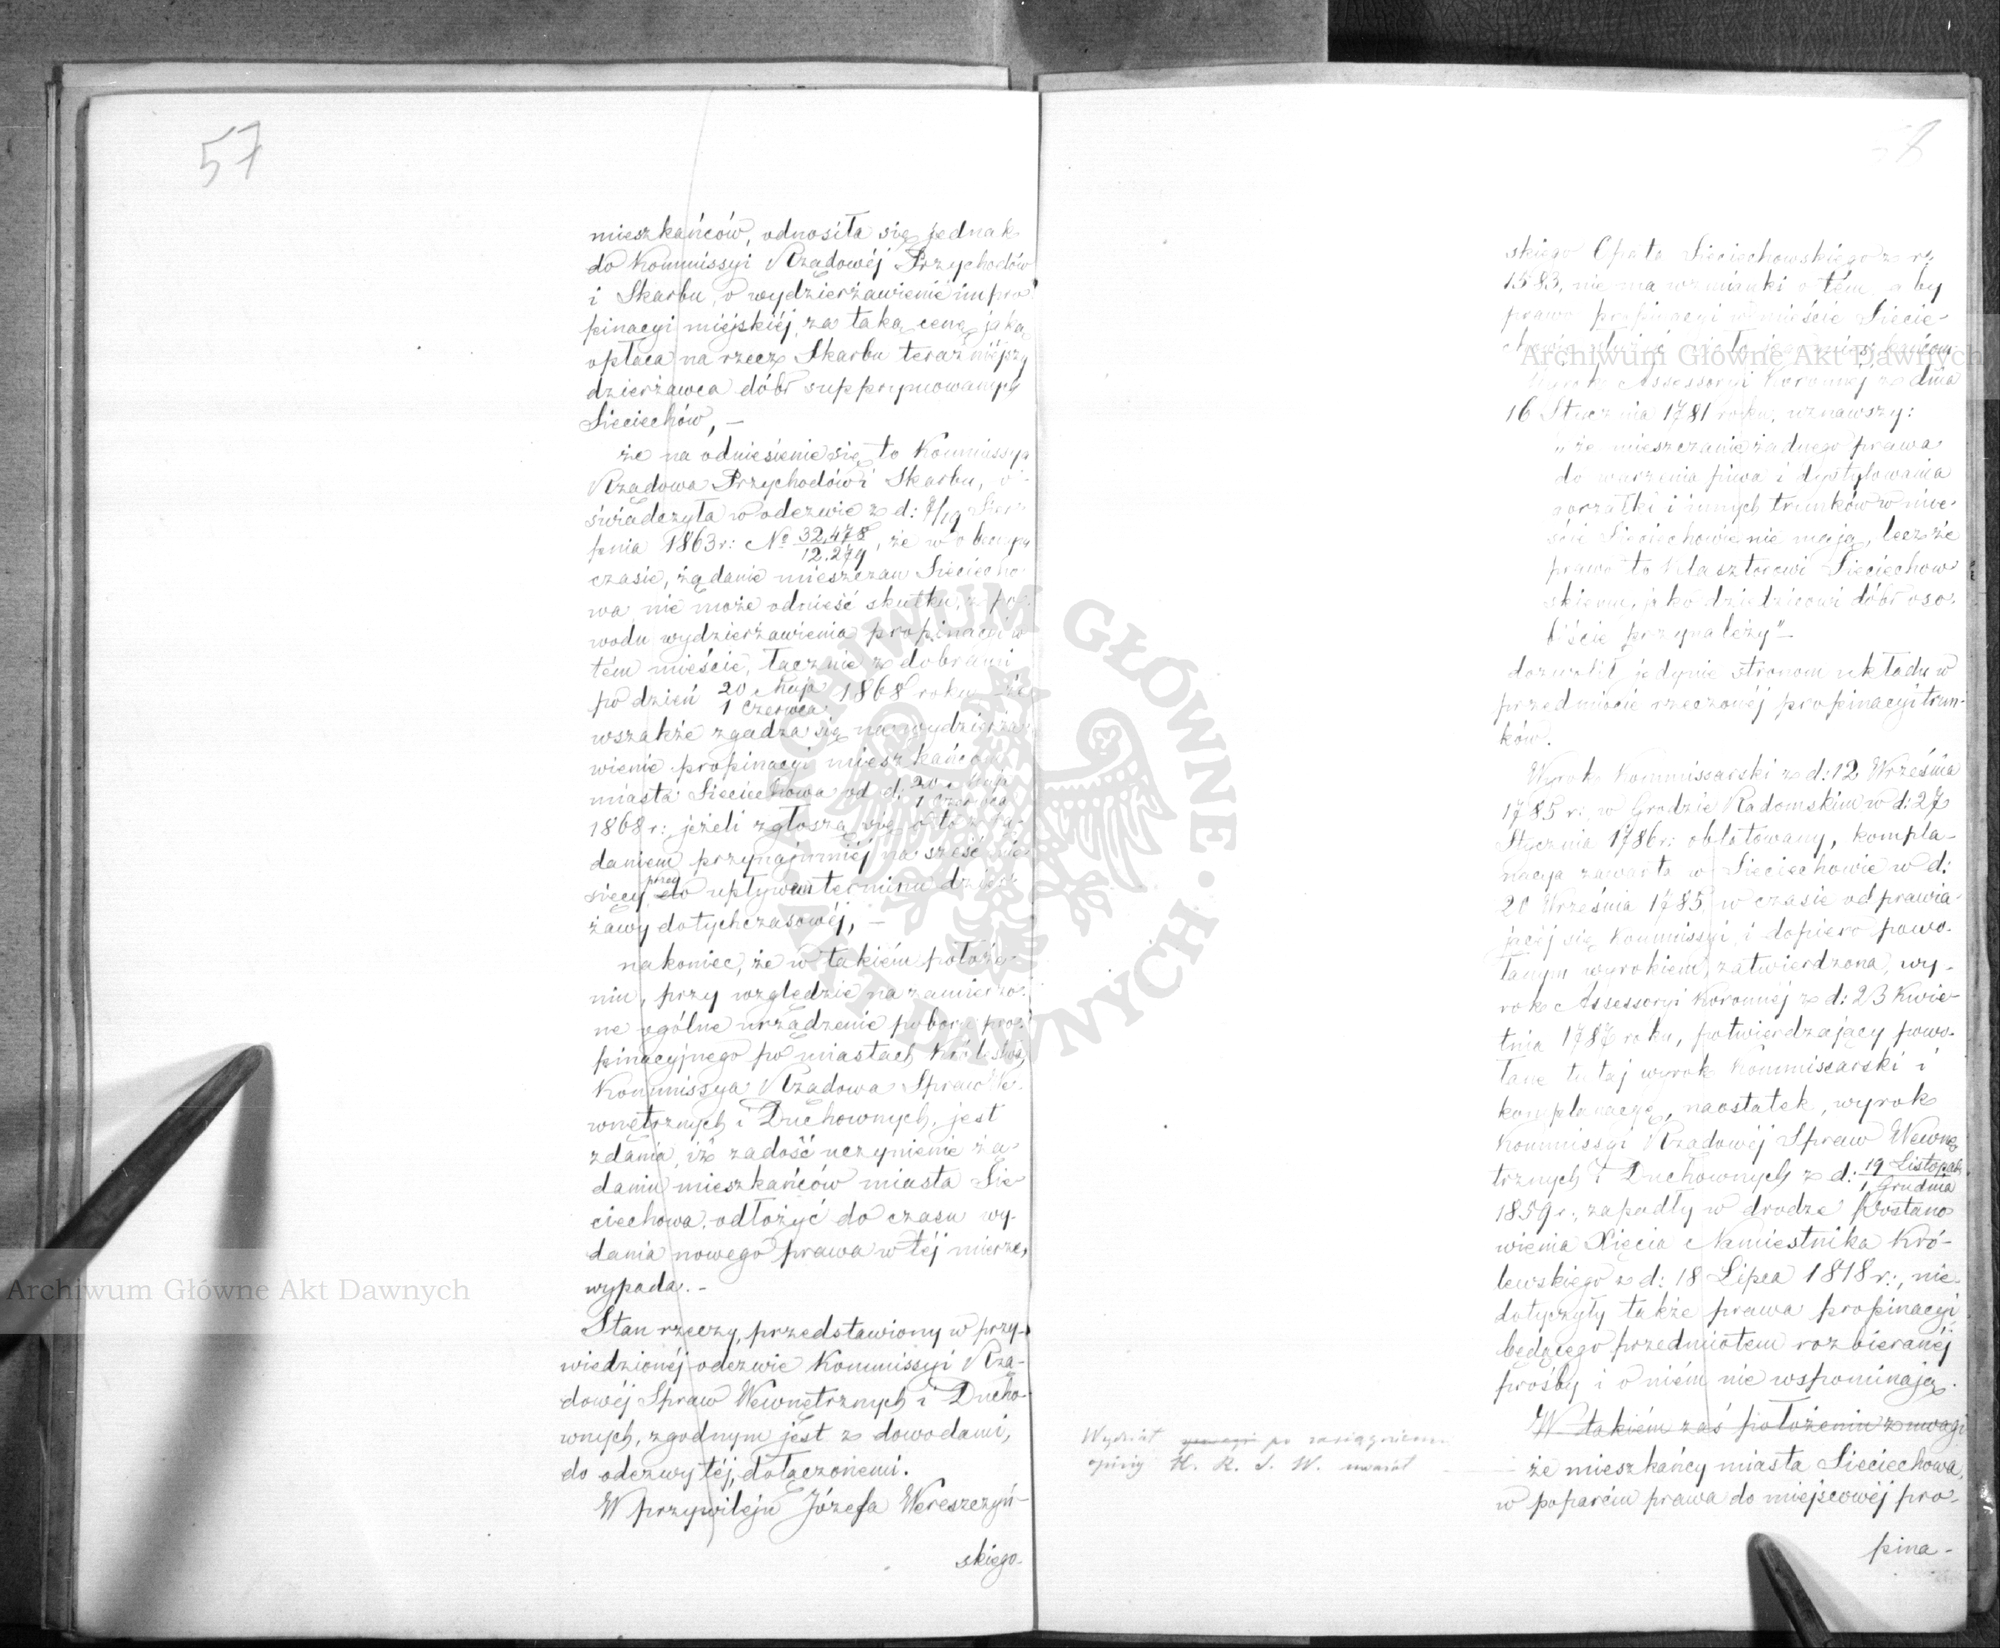 57
mieszkańców, odnosiła się jednak
do Kommissyi Rządowéj Przychodów
i Skarbu, o wydzierżawienie im pro-
pinacyi miejskiéj, za taką cenę, jaką
opłaca na rzecz Skarbu teraźniéjszy
dzierżawca dóbr suppyrmowanych
Sieciechów, —
że na odniesienie się to Kommissya
Rządowa Przychodów i Skarbu, o-
świadczyła w odezwie z d: 7/19 Sier-
pnia 1863 r: No 32,478/12.274, że w obecnym
czasie, żądanie mieszczan Sieciecho-
wa, nie może odnieść skutku, z po-
wodu wydzierżawienia propinacyi w
tém mieście, łącznie z dobrami
po dzień 20 Maja/1 Czerwca 1868 roku, że
wszakże zgadza się na wydzierża-
wienie propinacyi mieszkańcom
miasta Sieciechowa od d: 20 Maja/1 Czerwca
1868 r: jeżeli zgłoszą się o to z żą-
daniem przynajmniéj na sześć mie-
sięcy przed upływem terminu dzier-
żawy dotychczasowéj, —
nakoniec, że w takiém położe-
niu, przy względzie na zamierzo-
ne ogólne urządzenie poboru pro-
pinacyjnego po miastach Królestwa,
Kommissya Rządowa Spraw We-
wnętrznych i Duchownych, jest
zdania, iż zadość uczynienie żą-
daniu mieszkańców miasta Sie-
ciechowa, odłożyć do czasu wy-
dania nowego prawa w téj mierze,
wypada. —
Stan rzeczy, przedstawiony w przy-
wiedzionéj odezwie Kommissyi Rzą-
dowéj Spraw Wewnętrznych i Ducho-
wnych, zgodnym jest z dowodami,
do odezwy téj, dołączonemi.
W przywileju Józefa Wereszczyń-
skiego
skiego Opata Sieciechowskiego z r:
1583, nie ma wzmianki o tém, aby
prawo propinacyi w mieście Siecie-
chowie służyć miało mieszkańcom.
Wyrok Assessoryi Koronnéj z dnia
16 Stycznia 1781 roku, uznawszy:
„że mieszczanie żadnego prawa
do warzenia piwa i dystylowania
gorzałki i innych trunków w mie-
ście Sieciechowie nie mają, lecz że
prawo to Klasztorowi Sieciechow-
skiemu, jako dziedzicowi dóbr oso-
biście przynależy" —
dozwolił jedynie stronom układu w
przedmiocie rzeczonéj propinacyi trun-
ków.
Wyrok Kommissarski z d: 12 Września
1785 r: w Grodzie Radomskim w d: 27
Stycznia 1786 r: oblatowany, kompla-
nacya zawarta w Sieciechowie w d:
20 Września 1785, w czasie odprawia-
jącéj się Kommissyi, i dopiero powo-
łanym wyrokiem, zatwierdzona, wy-
rok Assessoryi Koronnéj z d: 23 Kwie-
tnia 1787 roku, potwierdzający powo-
łane tutaj wyrok Kommissarski i
komplanacyę, naostatek, wyrok
Kommissyi Rządowéj Spraw Wewnę-
trznych i Duchownych z d: 19 Listopada/1 Grudnia
1859 r:, zapadły w drodze Postano-
wienia Xięcia Namiestnika Kró-
lewskiego z d: 18 Lipca 1818 r:, nie
dotyczyły także prawa propinacyi
będącego przedmiotem rozbieranéj
prośby i o niém nie wspominają.
W takiém zaś położeniu z uwagi
Wydział po zasiągnieniu
opinij N. R. S. W. uważał
że mieszkańcy miasta Sieciechowa,
w poparciu prawa do miejscowéj pro-
pina-
Archiwum Główne Akt Dawnych
Archiwum Główne Akt Dawnych
ARCHIWUM GŁÓWNE AKT DAWNYCH